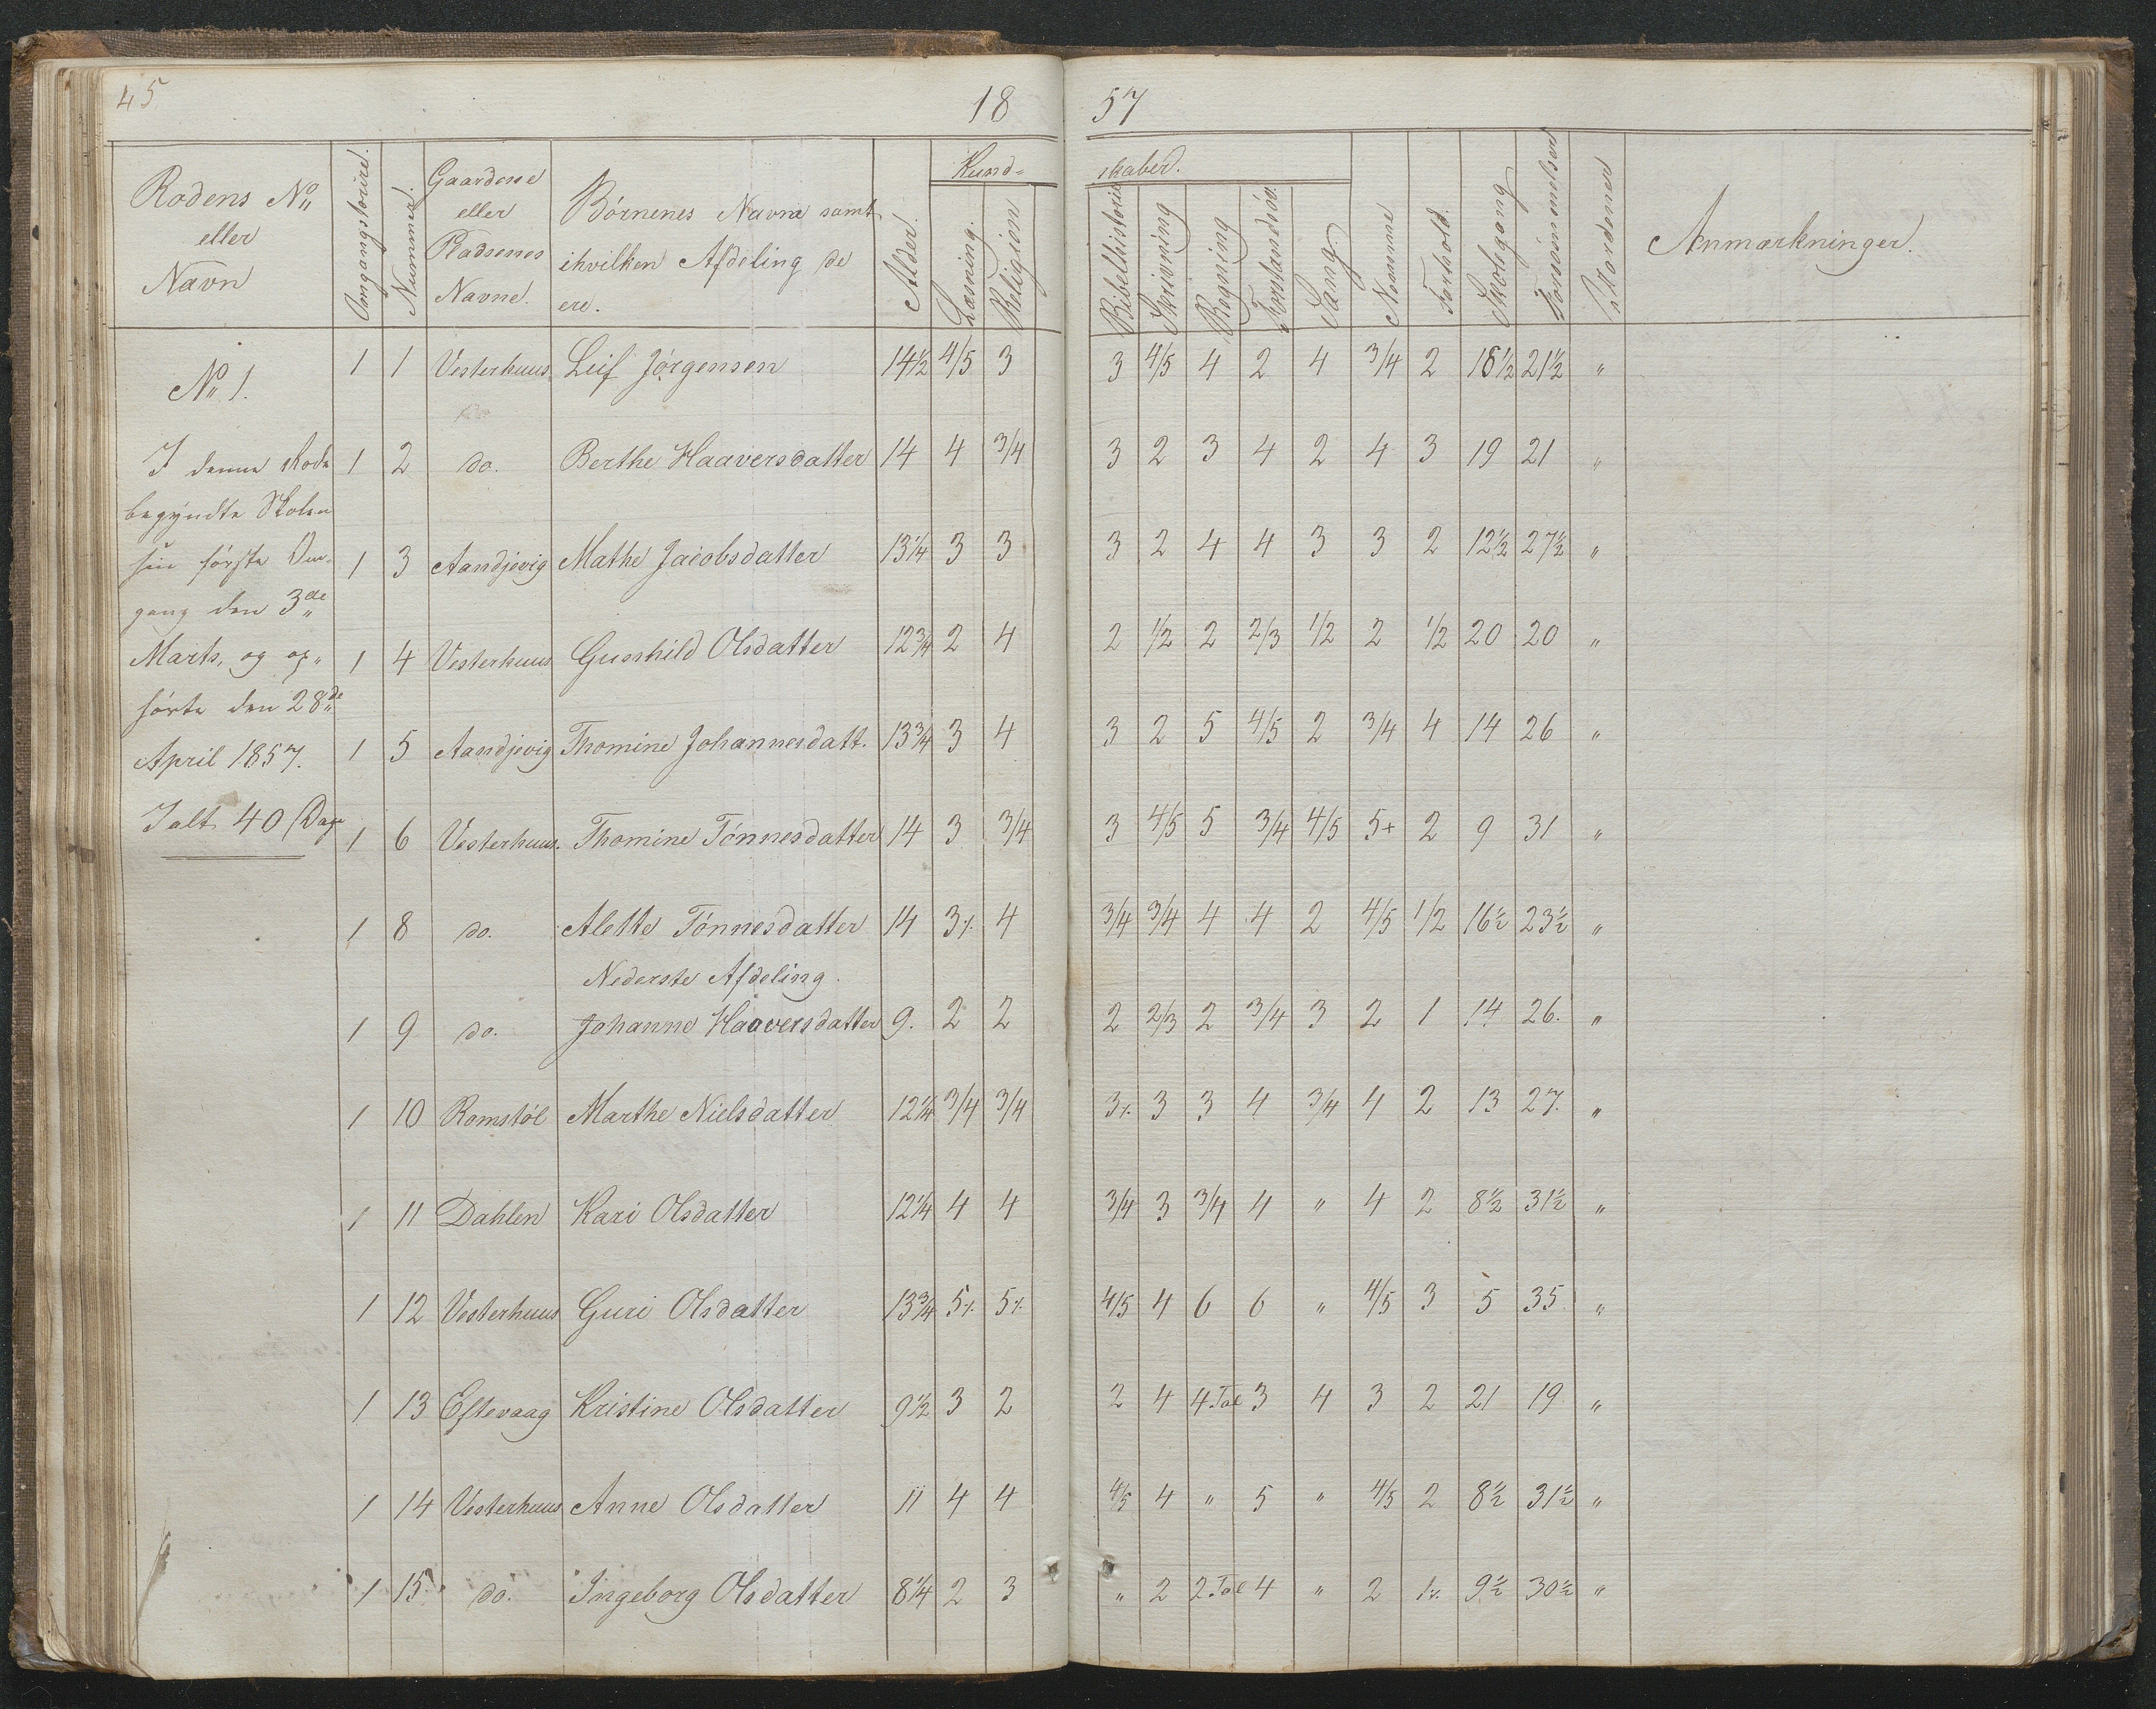 45
18 57
Rodens No eller Navn | Omgangstourer. | Nummer. | Gaardene eller Pladsenes Navne. | Børnenes Navne samt ihvilken Afdeling de ere. | Alder. | Kundskaber. Læsning. | Religion | Bibelhistorie | Skrivning | Regning | Forstandsøv. | Sang. | Nemme | Forhold. | Skolegang | Forsømmelser | Anmærkninger.
No 1.
I denne Rode
begyndte Skolen
sin første Om-
gang den 3de
Marts, og op-
hørte den 28de
April 1857.
Ialt 40 Dage
1 1 Vesterhuus Leif Jørgensen 14½ 4/5 3 3 4/5 4 2 4 3/4 2 18½ 21½ "
1 2 do. Berthe Haaversdatter 14 4 3/4 3 2 3 4 2 4 3 19 21 "
1 3 Aandjevig Mathe Jacobsdatter 13¼ 3 3 3 2 4 4 3 3 2 12½ 27½ "
1 4 Vesterhuus Gunhild Olsdatter 12¾ 2 4 2 1/2 2 2/3 1/2 2 1/2 20 20 "
1 5 Aandjevig Thomine Johannesdatt. 13¾ 3 4 3 2 5 4/5 2 3/4 4 14 26 "
1 6 Vesterhuus. Thomine Tønnesdatter 14 3 3/4 3 4/5 5 3/4 4/5 5+ 2 9 31 "
1 8 do. Alette Tønnesdatter 14 3⁒ 4 3/4 3/4 4 4 2 4/5 1/2 16½ 23½ "
Nederste Afdeling.
1 9 do. Johanne Haaversdatter 9. 2 2 2 2/3 2 3/4 3 2 1 14 26. "
1 10 Romstøl Marthe Nielsdatter 12¼ 3/4 3/4 3⁒ 3 3 4 3/4 4 2 13 27. "
1 11 Dahlen Kari Olsdatter 12¼ 4 4 3/4 3 3/4 4 " 4 2 8½ 31½ "
1 12 Vesterhuus Guri Olsdatter 13¾ 5⁒ 5⁒ 4/5 4 6 6 " 4/5 3 5 35 "
1 13 Eftevaag Kristine Olsdatter 9½ 3 2 2 4 4 Tal 3 4 3 2 21 19 "
1 14 Vesterhuus Anne Olsdatter 11 4 4 4/5 4 " 5 " 4/5 2 8½ 31½ "
1 15 do. Ingeborg Olsdatter 8¼ 2 3 " 2 2 Tal 4 " 2 1⁒ 9½ 30½ "